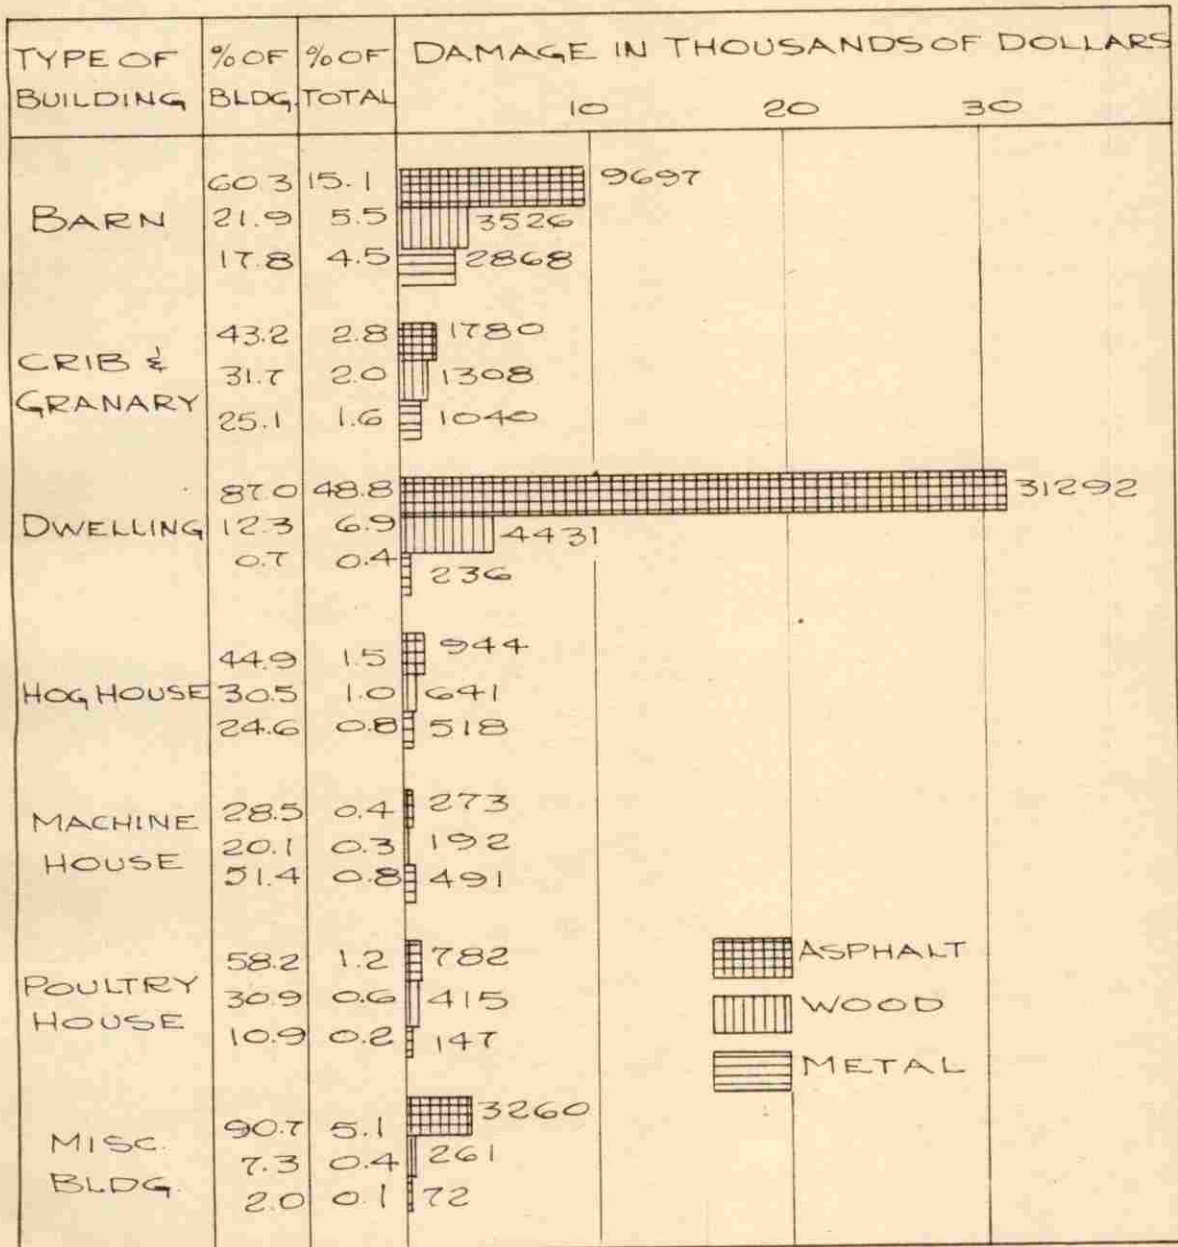 TYPE OF BUILDING % OF BLDG. % OF TOTAL DAMAGE IN THOUSANDS OF DOLLARS
10 20 30
BARN
60.3 15.1 9697
21.9 5.5 3526
17.8 4.5 2868
CRIB & GRANARY
43.2 2.8 1780
31.7 2.0 1308
25.1 1.6 1040
DWELLING
87.0 48.8 31292
12.3 6.9 4431
0.7 0.4 236
HOG HOUSE
44.9 1.5 944
30.5 1.0 641
24.6 0.8 518
MACHINE HOUSE
28.5 0.4 273
20.1 0.3 192
51.4 0.8 491
POULTRY HOUSE
58.2 1.2 782
30.9 0.6 415
10.9 0.2 147
ASPHALT
WOOD
METAL
MISC. BLDG.
90.7 5.1 3260
7.3 0.4 261
2.0 0.1 72